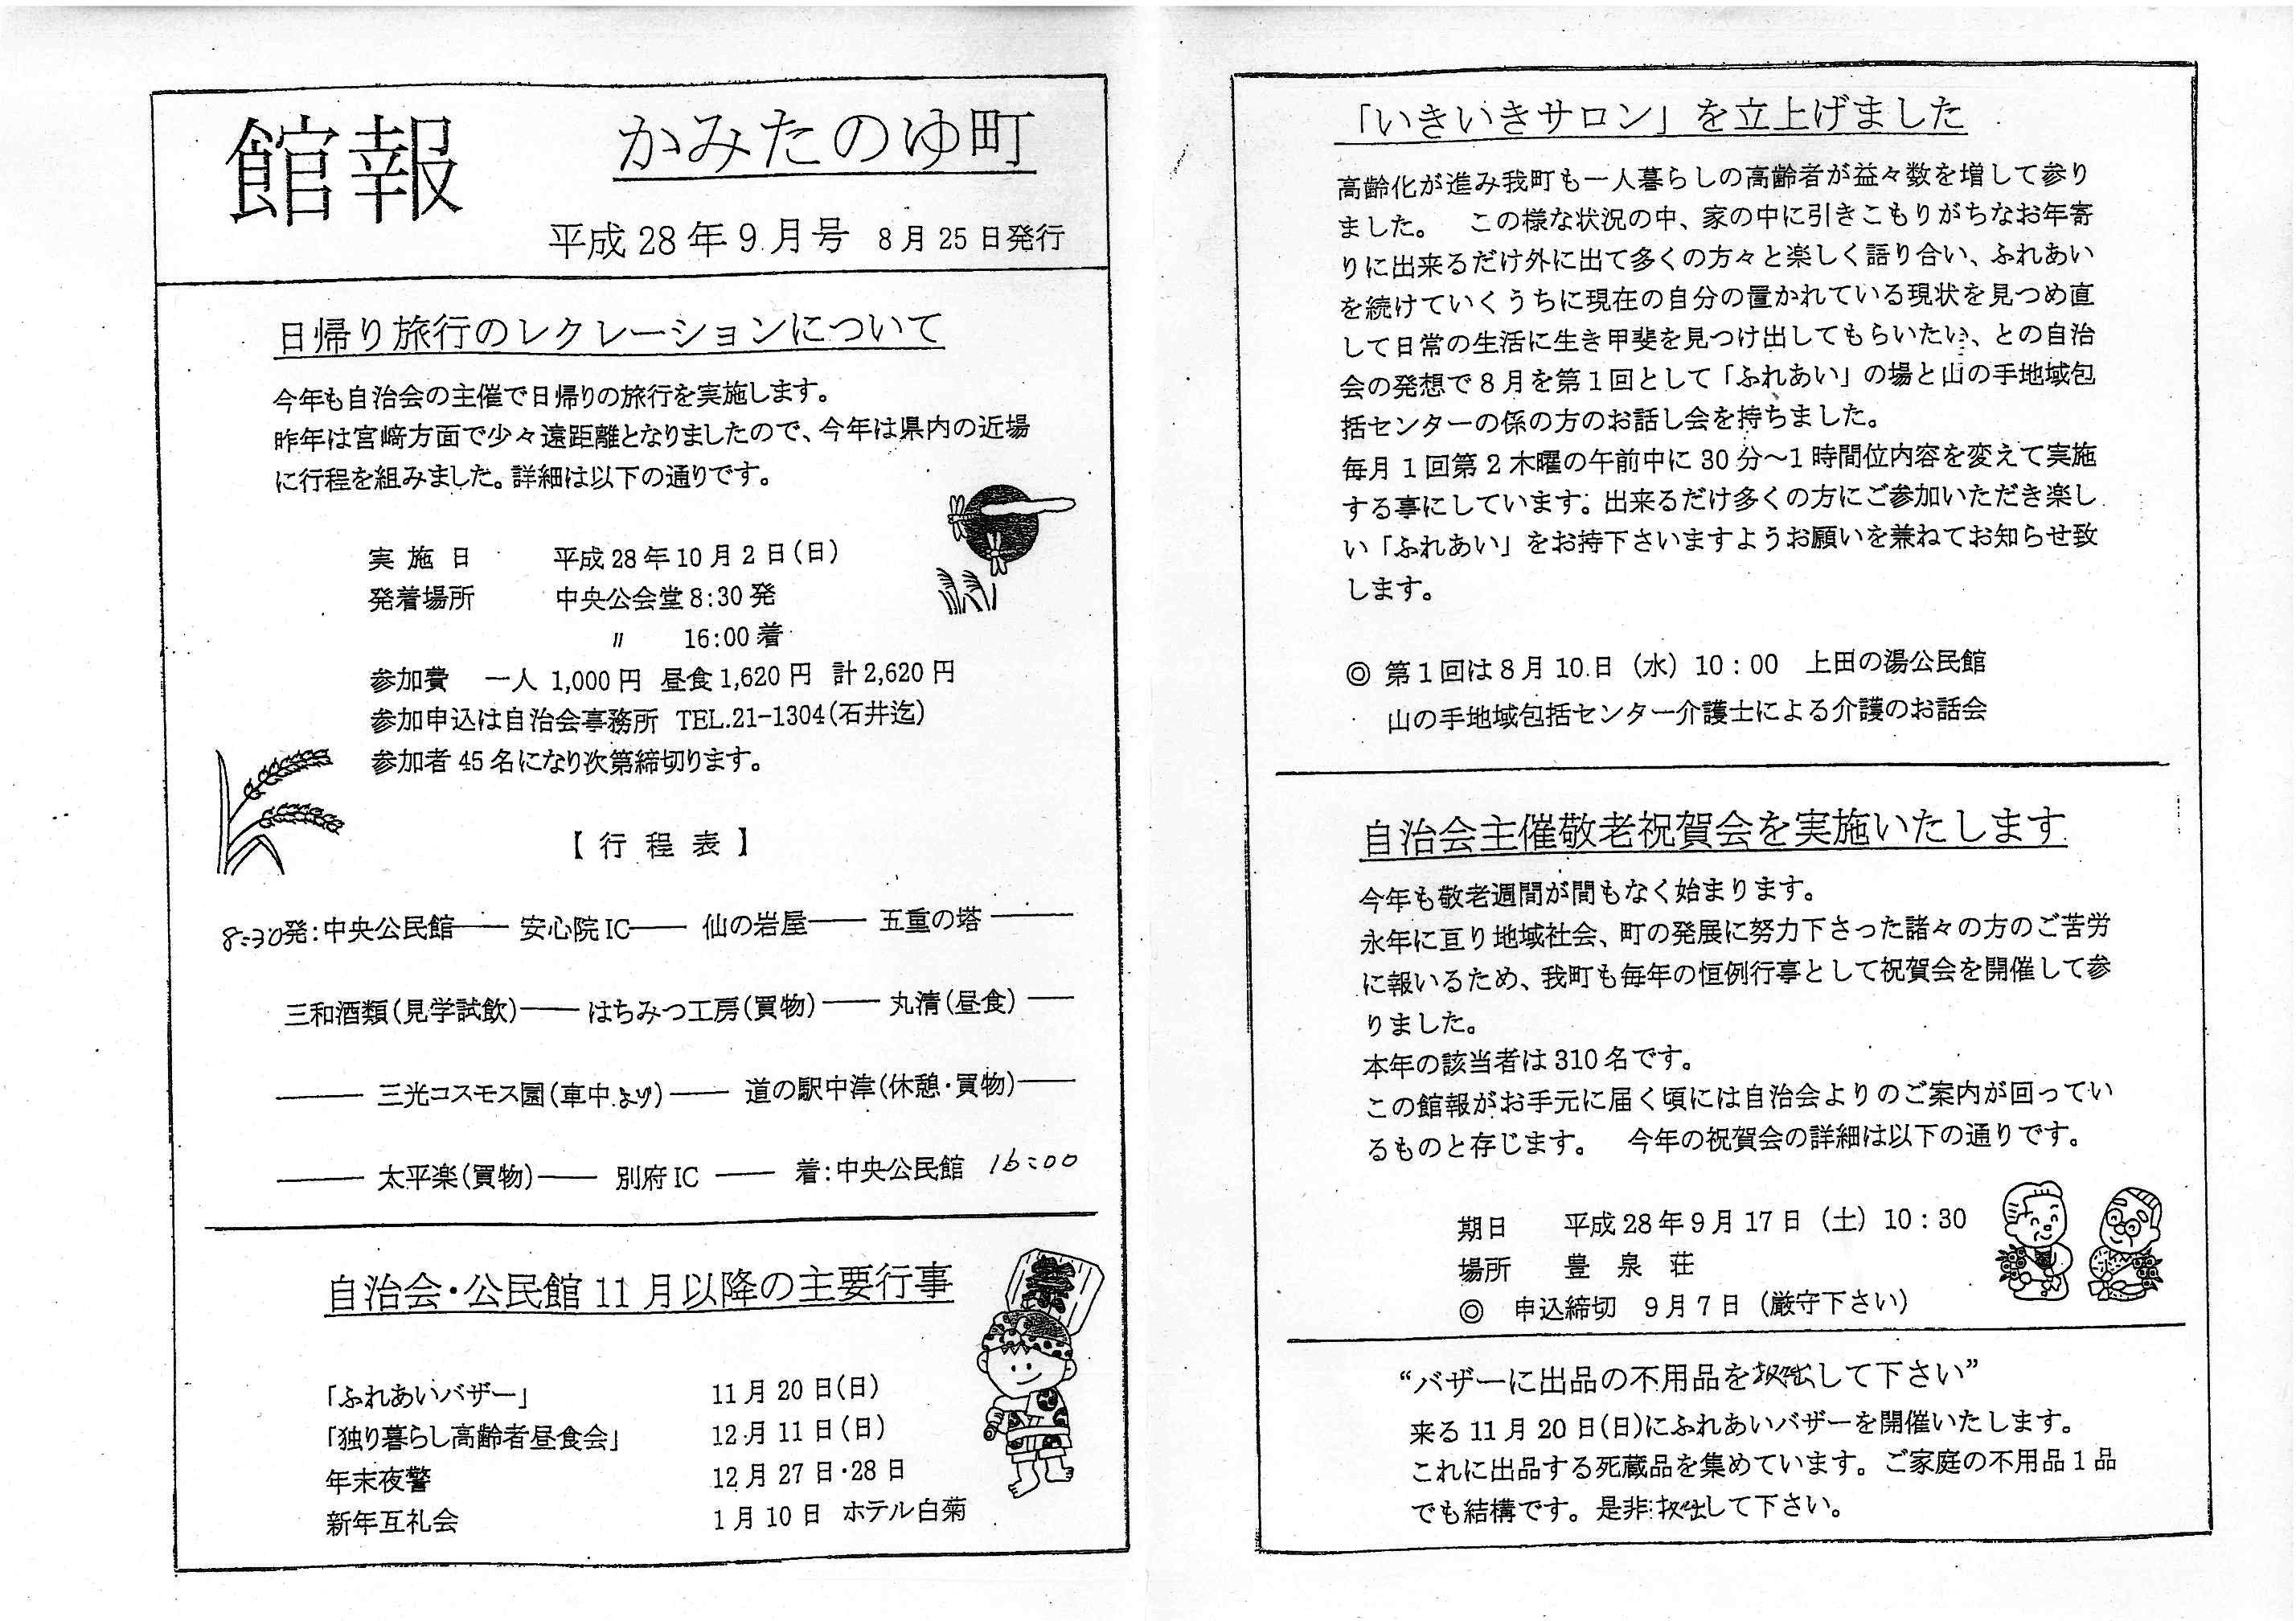 館報
かみたのゆ町
平成28年9月号 8月25日発行
日帰り旅行のレクレーションについて
今年も自治会の主催で日帰りの旅行を実施します。
昨年は宮﨑方面で少々遠距離となりましたので、今年は県内の近場
に行程を組みました。詳細は以下の通りです。
実施日 平成28年10月2日(日)
発着場所 中央公会堂8:30発
〃 16:00着
参加費 一人 1,000円 昼食1,620円 計2,620円
参加申込は自治会事務所 TEL.21-1304(石井迄)
参加者45名になり次第締切ります。
【行程表】
8:30発:中央公民館―― 安心院IC―― 仙の岩屋―― 五重の塔――
三和酒類(見学試飲)―― はちみつ工房(買物)―― 丸清(昼食)――
―― 三光コスモス園(車中より)―― 道の駅中津(休憩・買物)――
―― 太平楽(買物)―― 別府IC ―― 着:中央公民館 16:00
自治会・公民館11月以降の主要行事
祭
「ふれあいバザー」 11月20日(日)
「独り暮らし高齢者昼食会」 12月11日(日)
年末夜警 12月27日・28日
新年互礼会 1月10日 ホテル白菊
「いきいきサロン」を立上げました
高齢化が進み我町も一人暮らしの高齢者が益々数を増して参り
ました。 この様な状況の中、家の中に引きこもりがちなお年寄
りに出来るだけ外に出て多くの方々と楽しく語り合い、ふれあい
を続けていくうちに現在の自分の置かれている現状を見つめ直
して日常の生活に生き甲斐を見つけ出してもらいたい、との自治
会の発想で8月を第1回として「ふれあい」の場と山の手地域包
括センターの係の方のお話し会を持ちました。
毎月1回第2木曜の午前中に30分～1時間位内容を変えて実施
する事にしています。出来るだけ多くの方にご参加いただき楽し
い「ふれあい」をお持下さいますようお願いを兼ねてお知らせ致
します。
◎ 第1回は8月10日（水）10：00 上田の湯公民館
山の手地域包括センター介護士による介護のお話会
自治会主催敬老祝賀会を実施いたします
今年も敬老週間が間もなく始まります。
永年に亘り地域社会、町の発展に努力下さった諸々の方のご苦労
に報いるため、我町も毎年の恒例行事として祝賀会を開催して参
りました。
本年の該当者は310名です。
この館報がお手元に届く頃には自治会よりのご案内が回ってい
るものと存じます。 今年の祝賀会の詳細は以下の通りです。
期日 平成28年9月17日（土）10：30
場所 豊泉荘
◎ 申込締切 9月7日（厳守下さい）
“バザーに出品の不用品を して下さい”
来る11月20日(日)にふれあいバザーを開催いたします。
これに出品する死蔵品を集めています。ご家庭の不用品1品
でも結構です。是非 して下さい。